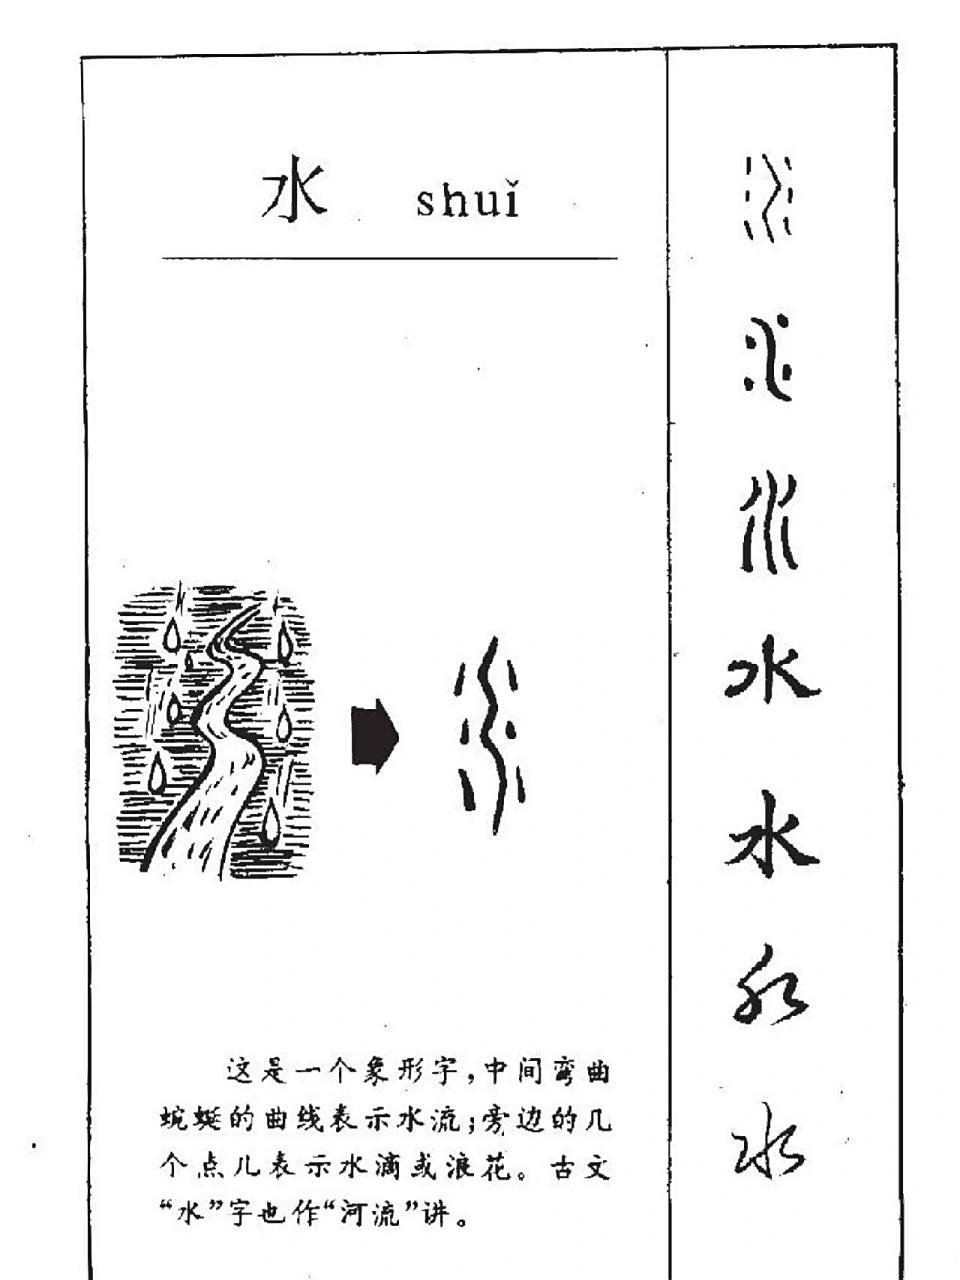 水 shuǐ
这是一个象形字,中间弯曲
蜿蜒的曲线表示水流;旁边的几
个点儿表示水滴或浪花。古文
“水”字也作“河流”讲。
水
水
水
水